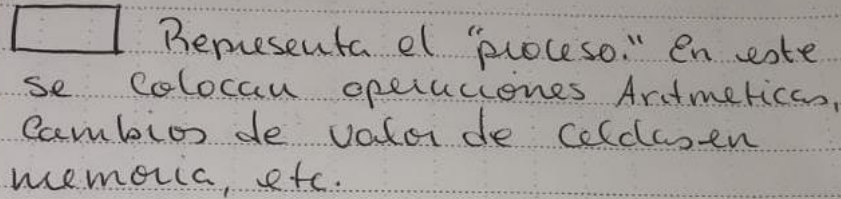 Representa el "proceso." En este
se colocan operaciones Aritmeticas,
Cambios de valor de celdas en
memoria, etc.